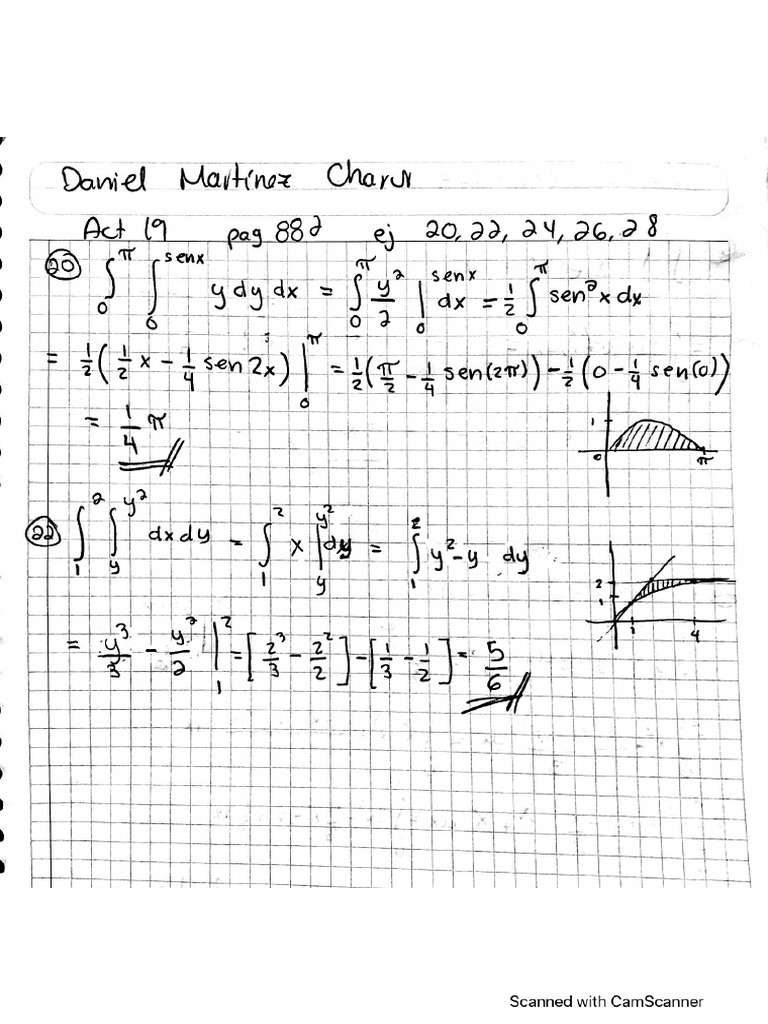 Daniel Martínez Charur
Act 19 pag 882 ej 20, 22, 24, 26, 28
20 ∫₀^π ∫₀^senx y dy dx = ∫₀^π y²/2 |₀^senx dx = 1/2 ∫₀^π sen²x dx
= 1/2 (1/2 x − 1/4 sen 2x) |₀^π = 1/2 (π/2 − 1/4 sen(2π)) − 1/2 (0 − 1/4 sen(0))
= 1/4 π
1
0 π
22 ∫₁² ∫_y^y² dx dy = ∫₁² x |_y^y² dy = ∫₁² y² − y dy
2
1
1 4
= y³/3 − y²/2 |₁² = [2³/3 − 2²/2] − [1/3 − 1/2] = 5/6
Scanned with CamScanner